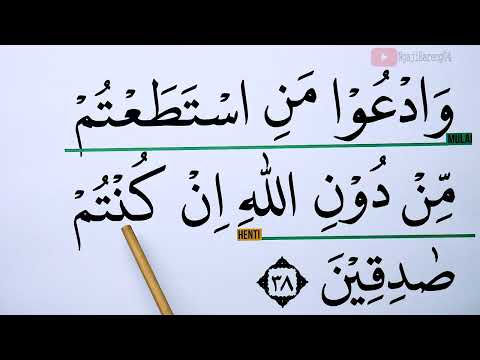 NgajiBareng04
وَادْعُوْا مَنِ اسْتَطَعْتُمْ
MULAI
مِّنْ دُوْنِ اللّٰهِ اِنْ كُنْتُمْ
HENTI
صٰدِقِيْنَ ٣٨